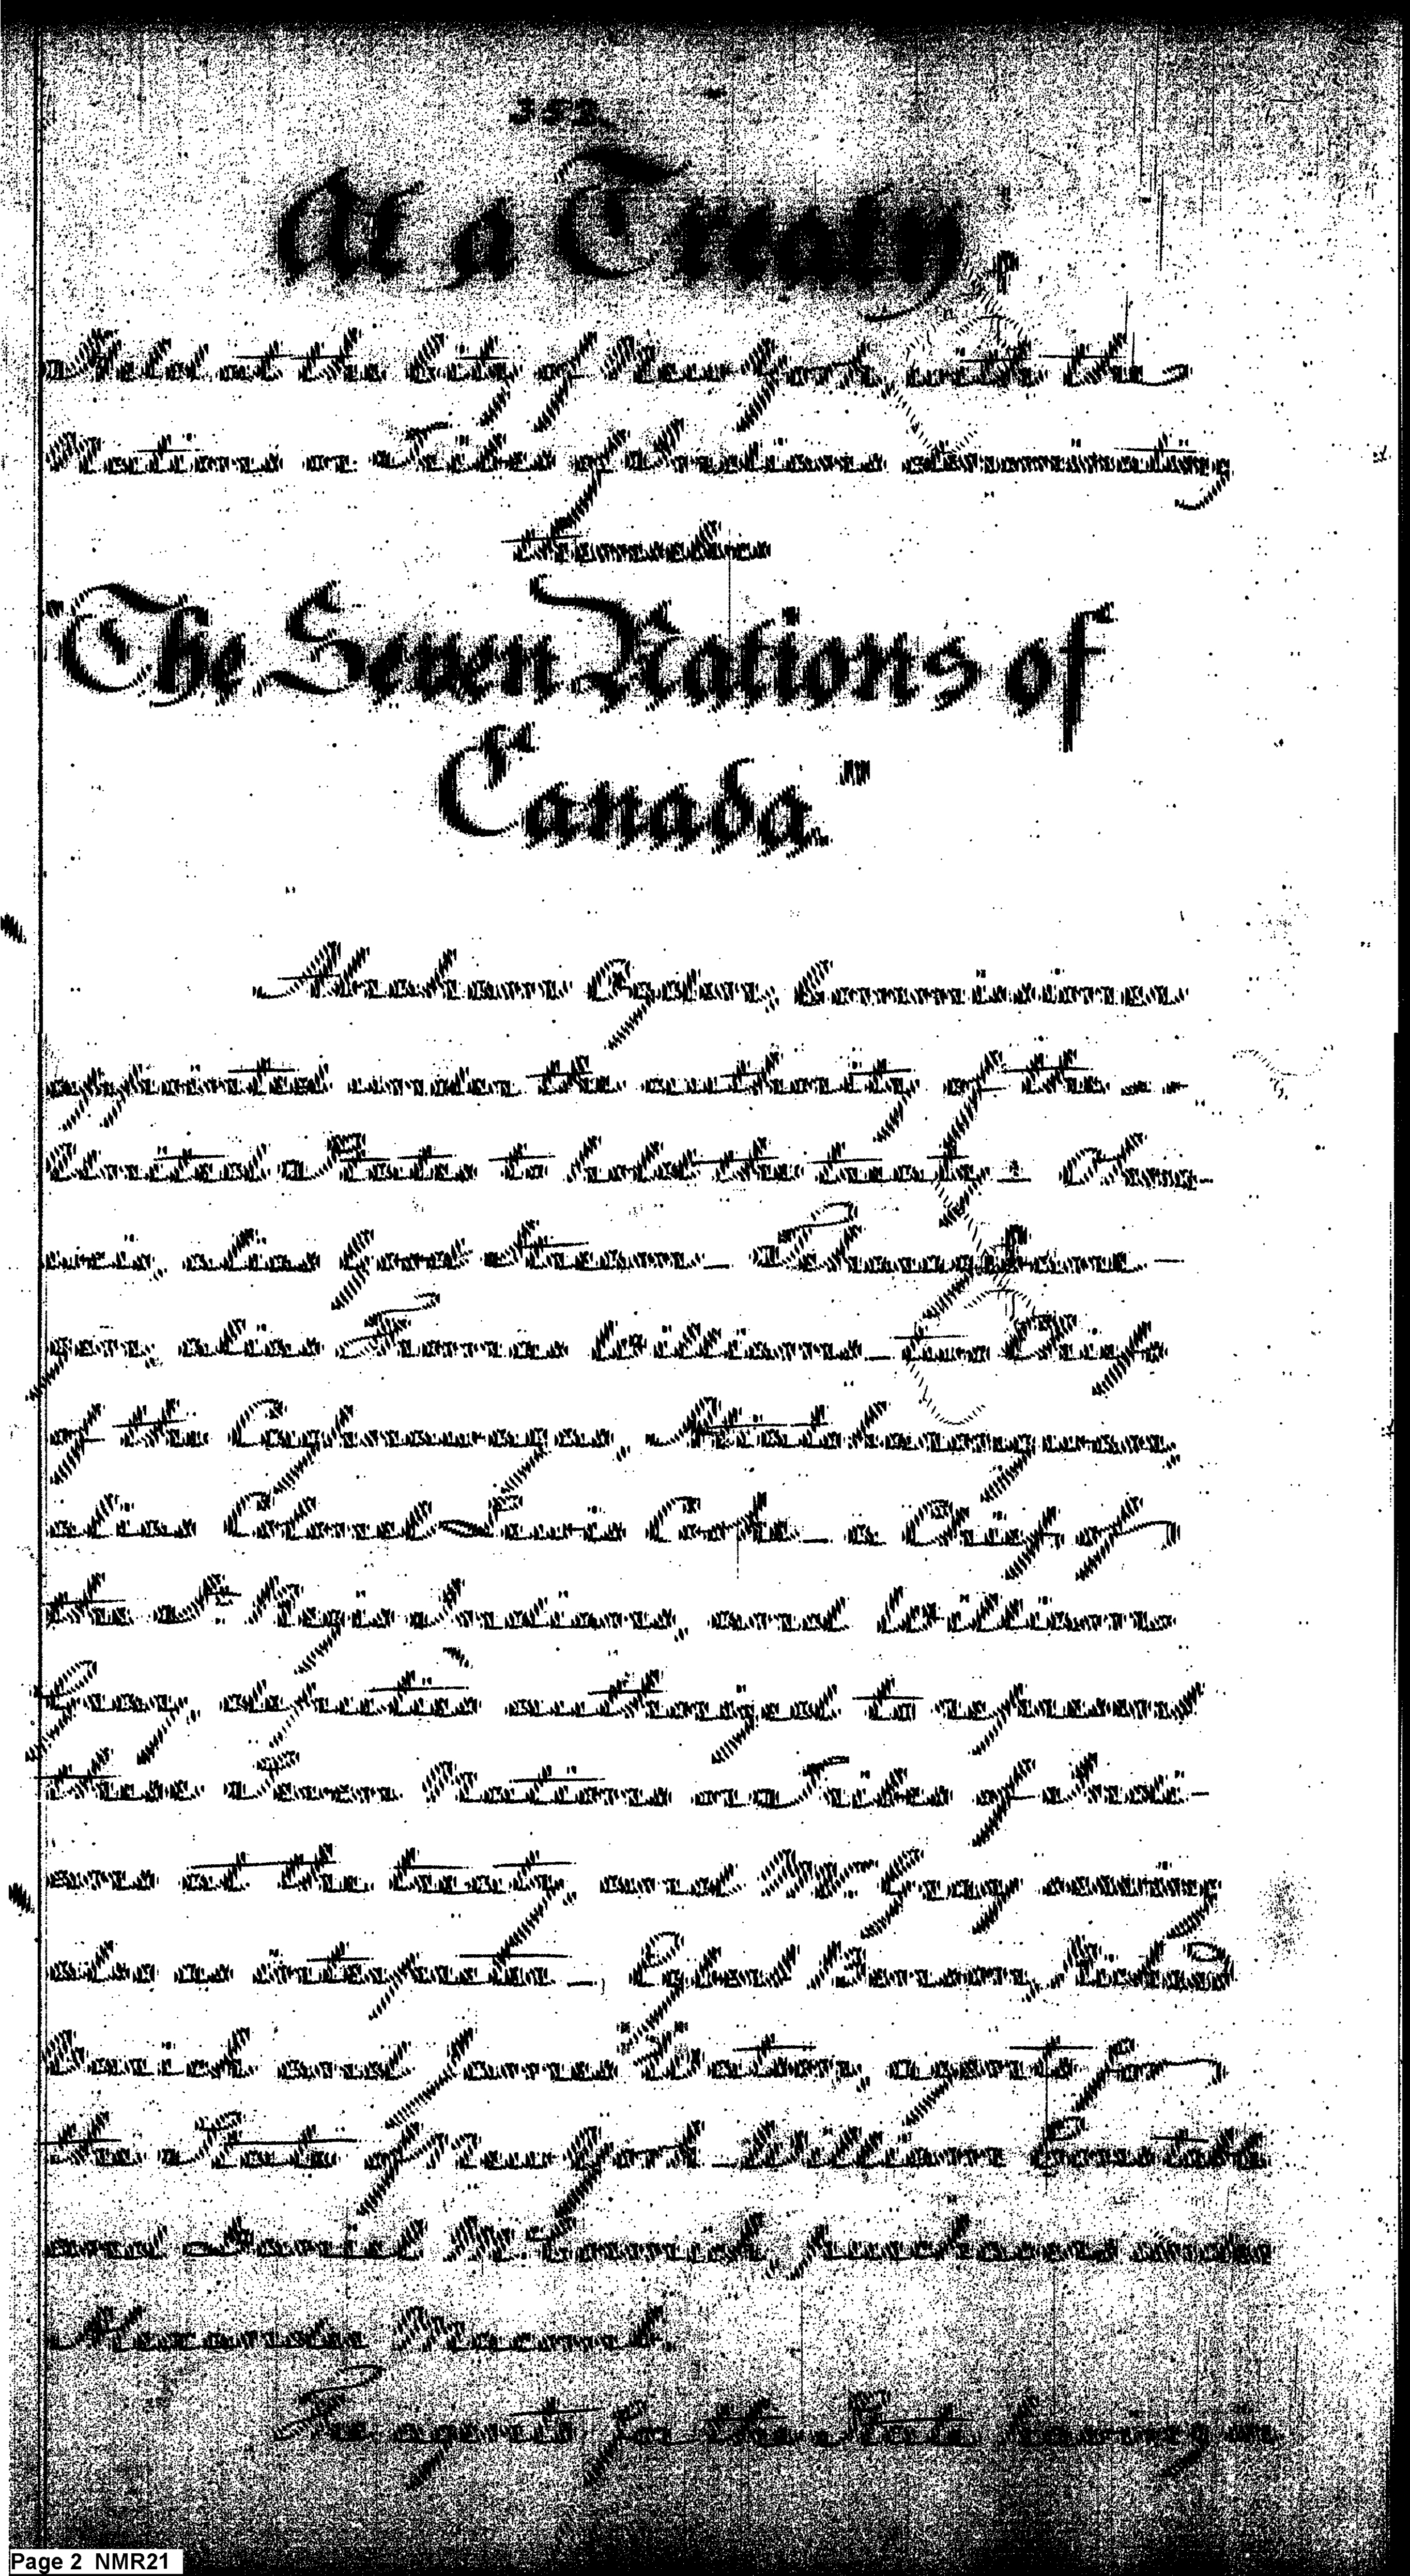 352
At a Treaty,
Held at the City of New York, with the
Nations or Tribes of Indians denominating
themselves
"The Seven Nations of
Canada."
Abraham Ogden, Commissioner
appointed under the authority of the
United States to hold the treaty - Ohna-
weio, alias Good Stream - Teharagwane-
gen, alias Thomas Williams - two Chiefs
of the Caghnawagas, Atiatoharongwan,
alias Colonel Louis Cook - a Chief of
the St. Regis Indians, and William
Gray, deputies authorized to represent
these Seven Nations or Tribes of Indi-
ans at the treaty, and Mr. Gray serving
also as interpreter - Egbert Benson, Richard
Varick and James Watson, agents for
the State of New York - William Constable
and Daniel McCormick, purchasers under
Alexander Macomb.
The agents for the State having in